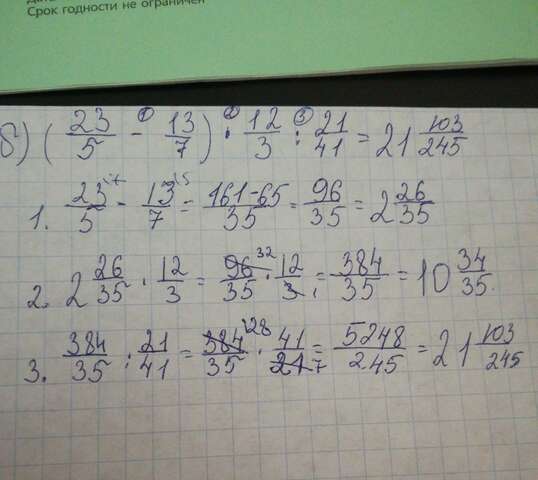 Срок годности не ограничен
б) ( 23/5 - 13/7 ) · 12/3 : 21/41 = 21 103/245
1. 23/5 - 13/7 = 161-65/35 = 96/35 = 2 26/35
2. 2 26/35 · 12/3 = 96/35 32 · 12/3 1 = 384/35 = 10 34/35.
3. 384/35 : 21/41 = 384/35 128 · 41/21 7 = 5248/245 = 21 103/245